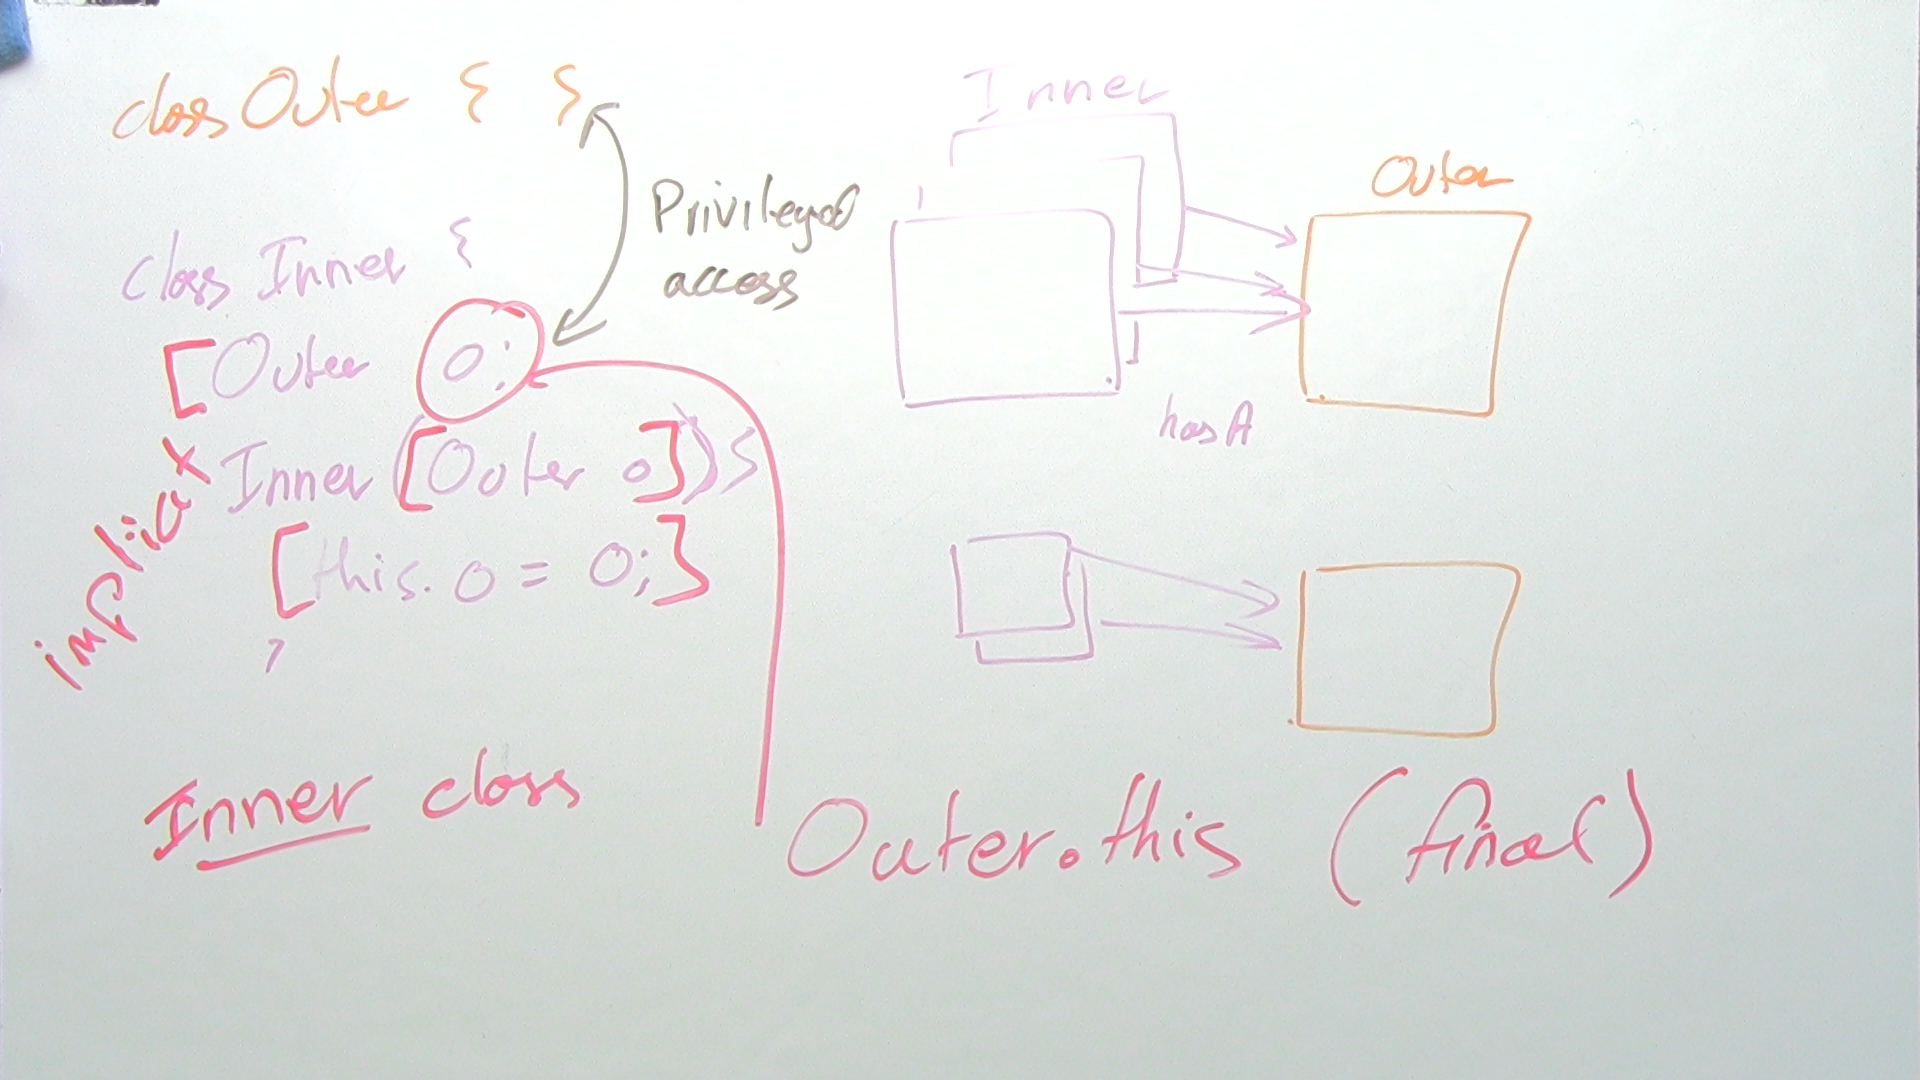 class Outer { }
Privileged
access
class Inner {
[Outer o;
Inner ([Outer o]) {
[this.o = o;]
}
implicit
Inner class
Inner
Outer
has A
Outer.this (final)